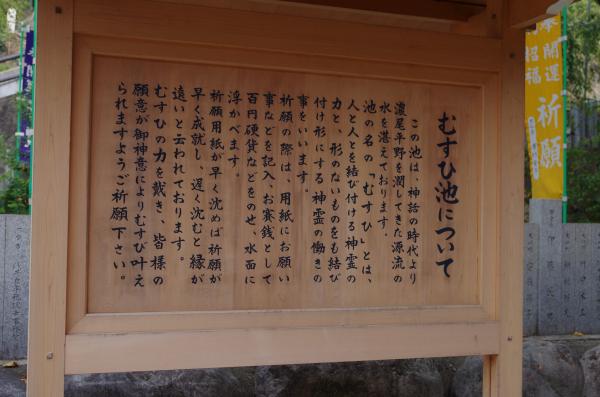 むすひ池について
この池は、神話の時代より
濃尾平野を潤してきた源流の
水を湛えております。
池の名の「むすひ」とは、
人と人とを結び付ける神霊の
力と、形のないものをも結び
付け形にする神霊の働きの
事をいいます。
祈願の際は、用紙にお願い
事などを記入、お賽銭として
百円硬貨などをのせ、水面に
浮かべます。
祈願用紙が早く沈めば祈願が
早く成就し、遅く沈むと縁が
遠いと云われております。
むすひの力を戴き、皆様の
願意が御神意によりむすび叶え
られますようご祈願下さい。
開運
招福
祈願